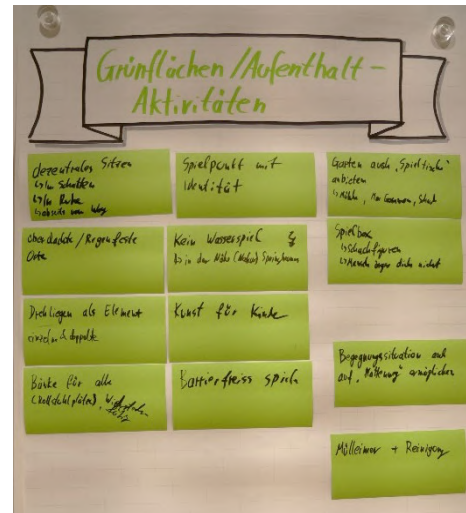 Grünflächen / Aufenthalt -
Aktivitäten
dezentrales Sitzen
↳ Im Schatten
↳ In Ruhe
↳ abseits vom Weg
überdachte / Regenfeste
Orte
Drehliegen als Element
einzeln & doppelte
Bänke für alle
(Rollstuhlplätze),
Spielpunkt mit
Identität
Kein Wasserspiel
↳ in der Nähe Springbrunnen
Kunst für Kinder
Barrierefreies Spielen
Garten auch "Spieltische"
anbieten
↳ Mühle, Schach
Spielbox
↳ Schachfiguren
↳ Mensch ärger dich nicht
Begegnungssituation auch
auf ermöglichen
Mülleimer + Reinigung